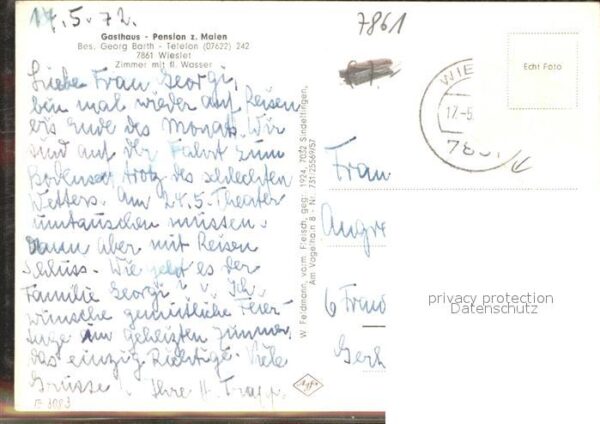 17.5.72.
7861
Gasthaus - Pension z. Maien
Bes. Georg Barth - Telefon (07622) 242
7861 Wieslet
Zimmer mit fl. Wasser
Liebe Frau Georgi,
bin mal wieder auf Reisen
bis Ende des Monats. Wir
sind auf der Fahrt zum
Bodensee trotz des schlechten
Wetters. Am 24.5. Theater
umtauschen müssen.
Dann aber mit Reisen
Schluss. Wie geht es der
Familie Georgi? Ich
wünsche gemütliche Feier-
tage im geheizten Zimmer,
das einzig Richtige. Viele
Grüsse! Ihre H. Trapp.
W. Feldmann, vorm. Fleisch, geg. 1924, 7032 Sindelfingen,
Am Vogelhain 8 - Nr. 731/25569/57
Agfa
WIE
17.-5.
Echt Foto
Frau
6 Fran
Gerh
privacy protection
Datenschutz